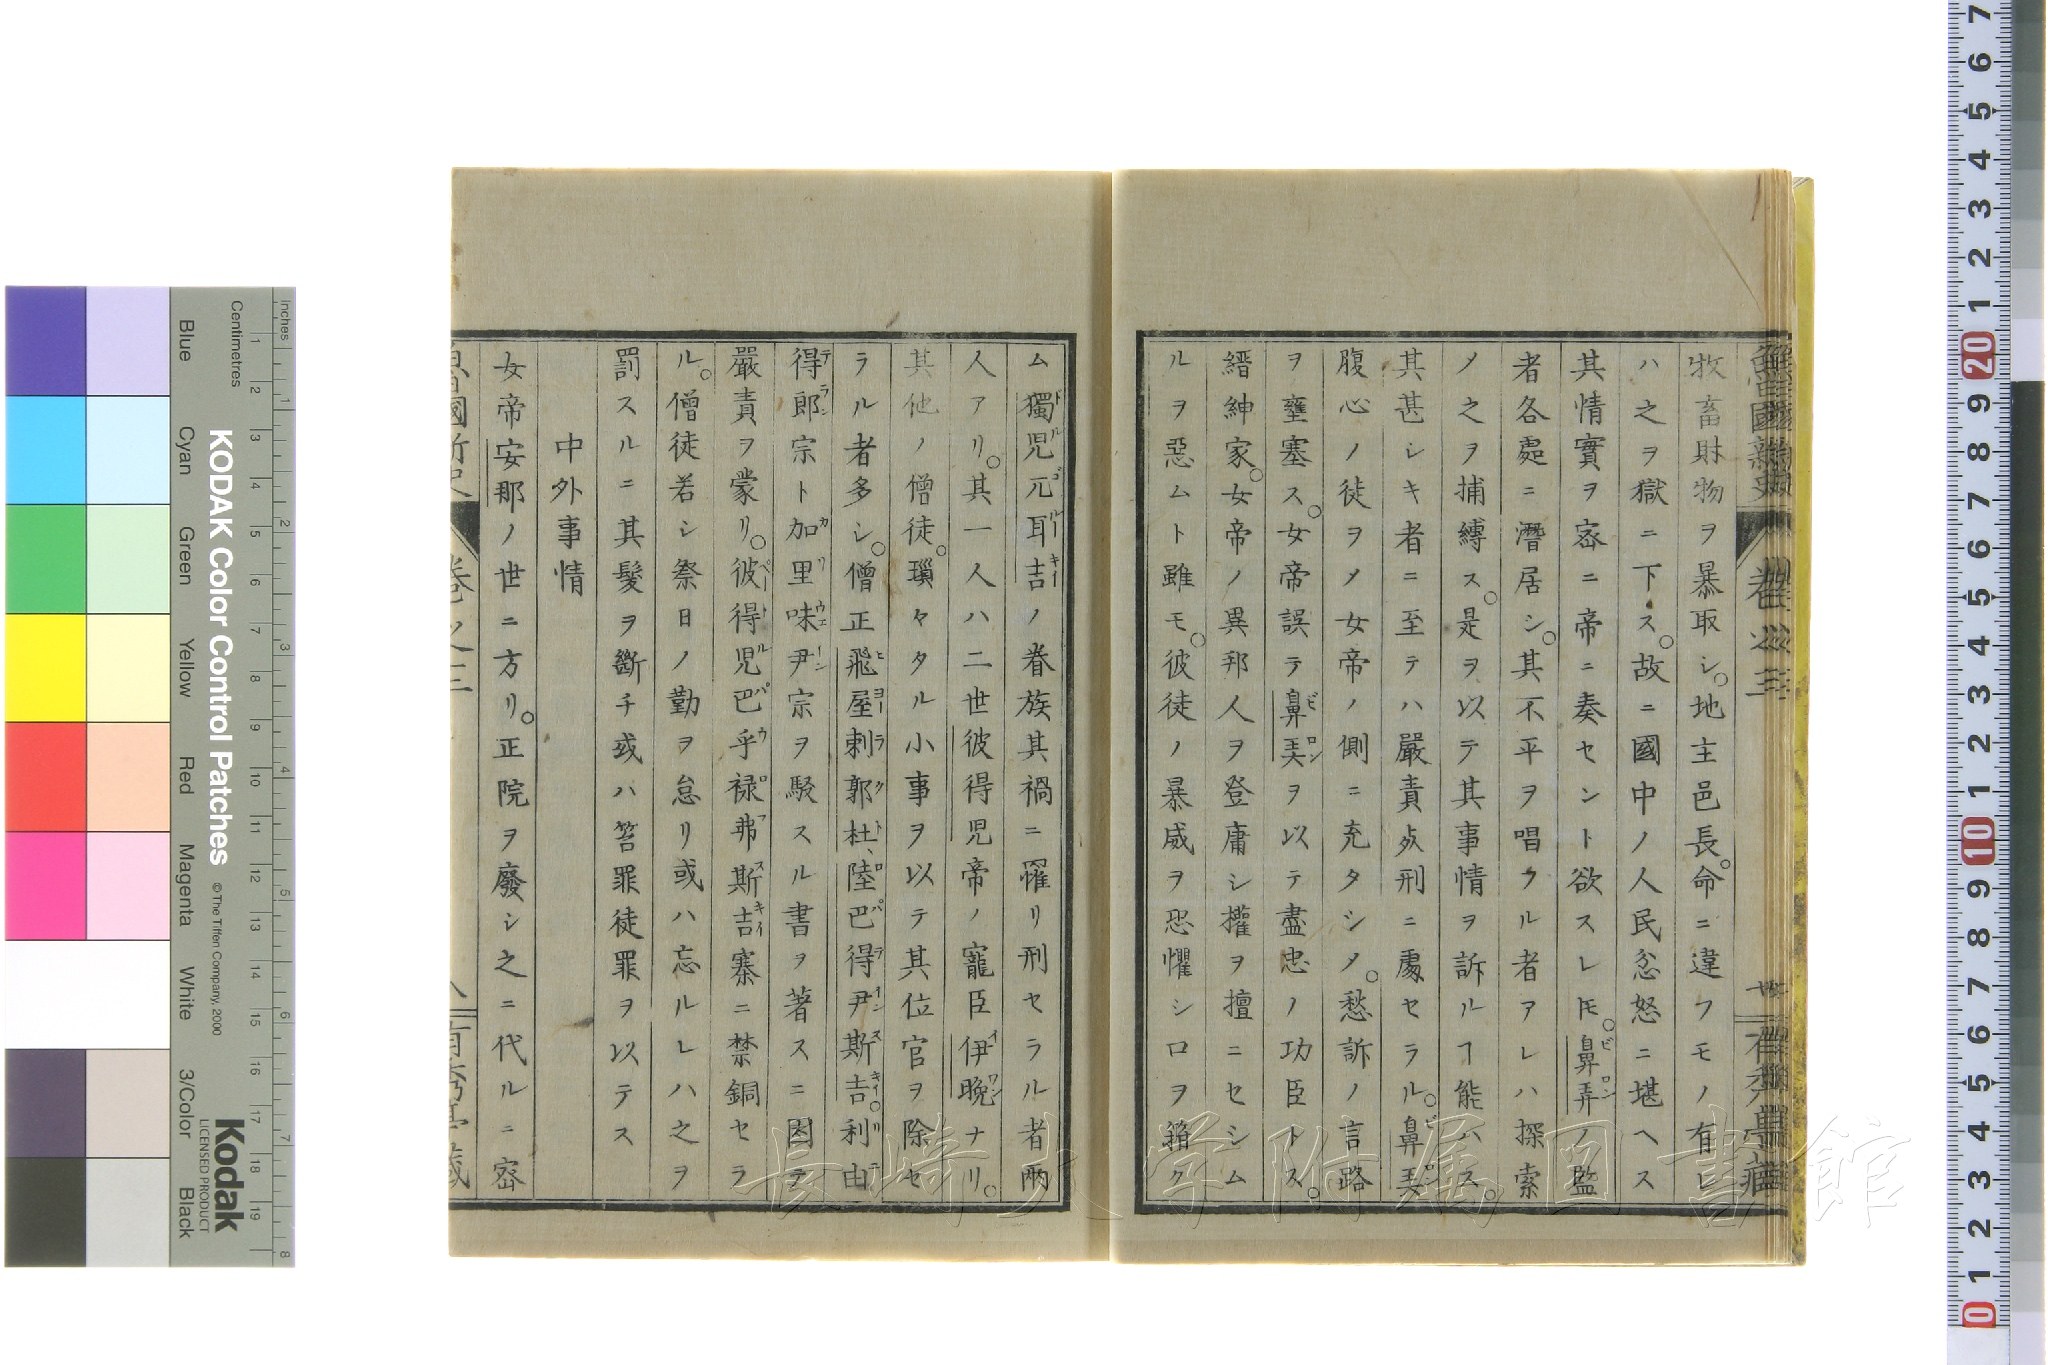 牧畜財物ヲ暴取シ。地主邑長。命ニ違フモノ有レ
ハ之ヲ獄ニ下ス。故ニ國中ノ人民忿怒ニ堪ヘス
其情實ヲ宻ニ帝ニ奏セント欲スレ𪜈。鼻弄ノ監
者各處ニ潛居シ。其不平ヲ唱フル者アレハ探索
ノ之ヲ捕縛ス。是ヲ以テ其事情ヲ訴ルヿ能ハス。
其甚シキ者ニ至テハ嚴責㸃刑ニ處セラル。鼻弄
腹心ノ徒ヲ〆女帝ノ側ニ充タシメ。愁訴ノ言路
ヲ壅塞ス。女帝誤テ鼻弄ヲ以テ盡忠ノ功臣トス。
縉紳家。女帝ノ異邦人ヲ登庸シ權ヲ擅ニセシム
ルヲ惡ムト雖モ。彼徒ノ暴威ヲ恐懼シ口ヲ箝ク
ム獨児兀耳吉ノ眷族其禍ニ罹リ刑セラル者兩
人アリ。其一人ハ二世彼得児帝ノ寵臣伊晩ナリ。
其他ノ僧徒。瑣々タル小事ヲ以テ其位官ヲ除セ
ラル者多シ。僧正飛屋剌郭杜、陸巴得尹斯吉。利由
得郎宗ト加里味尹宗ヲ駁スル書ヲ著スニ因テ
嚴責ヲ蒙リ。彼得児巴乎禄弗斯吉寨ニ禁錮セラ
ル。僧徒若シ祭日ノ勤ヲ怠リ或ハ忘ルレハ之ヲ
罰スルニ其髪ヲ斷チ或ハ笞罪徒罪ヲ以テス
中外事情
女帝安那ノ世ニ方リ。正院ヲ廢シ之ニ代ルニ宻
卷之三